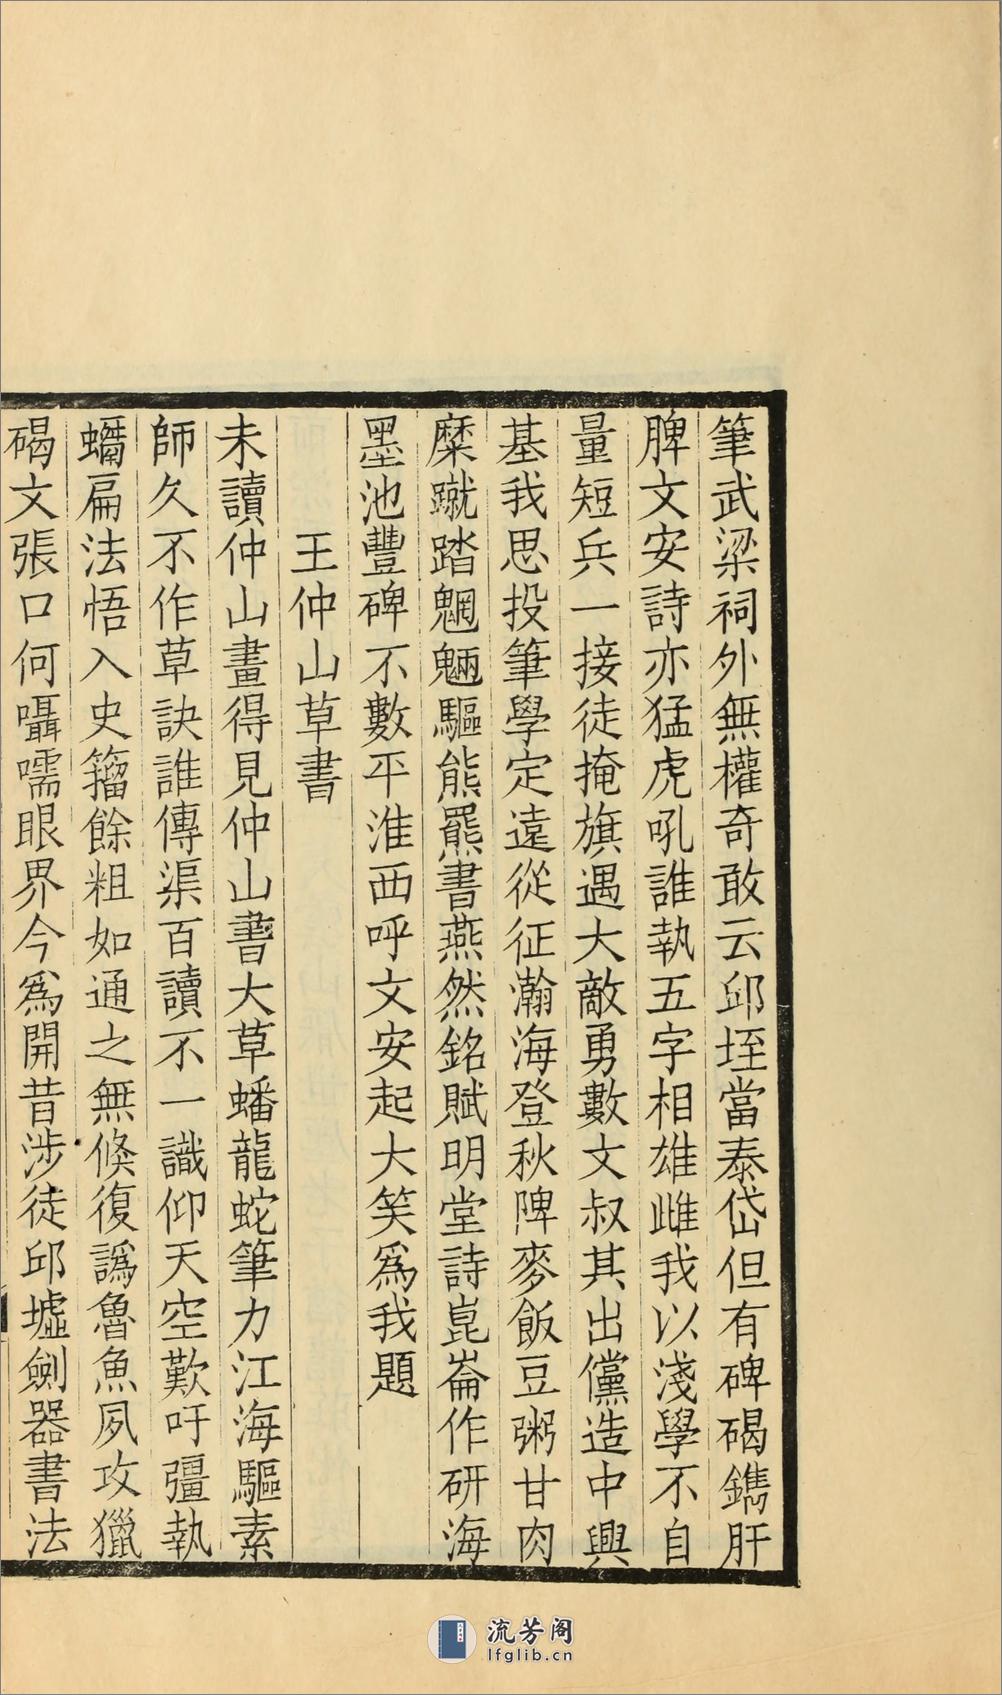 筆武梁祠外無權奇敢云邱垤當泰岱但有碑碣鐫肝
脾文安詩亦猛虎吼誰執五字相雄雌我以淺學不自
量短兵一接徒掩旗遇大敵勇數文叔其出儻造中興
基我思投筆學定遠從征瀚海登秋陴麥飯豆粥甘肉
糜蹴踏魍魎驅熊羆書燕然銘賦明堂詩崑崙作研海
墨池豐碑不數平淮西呼文安起大笑爲我題
王仲山草書
未讀仲山畫得見仲山書大草蟠龍蛇筆力江海驅素
師久不作草訣誰傳渠百讀不一識仰天空歎吁彊執
蠣扁法悟入史籀餘粗如通之無倏復譌魯魚夙攻獵
碣文張口何囁嚅眼界今爲開昔涉徒邱墟劍器書法
流芳阁
lfglib.cn